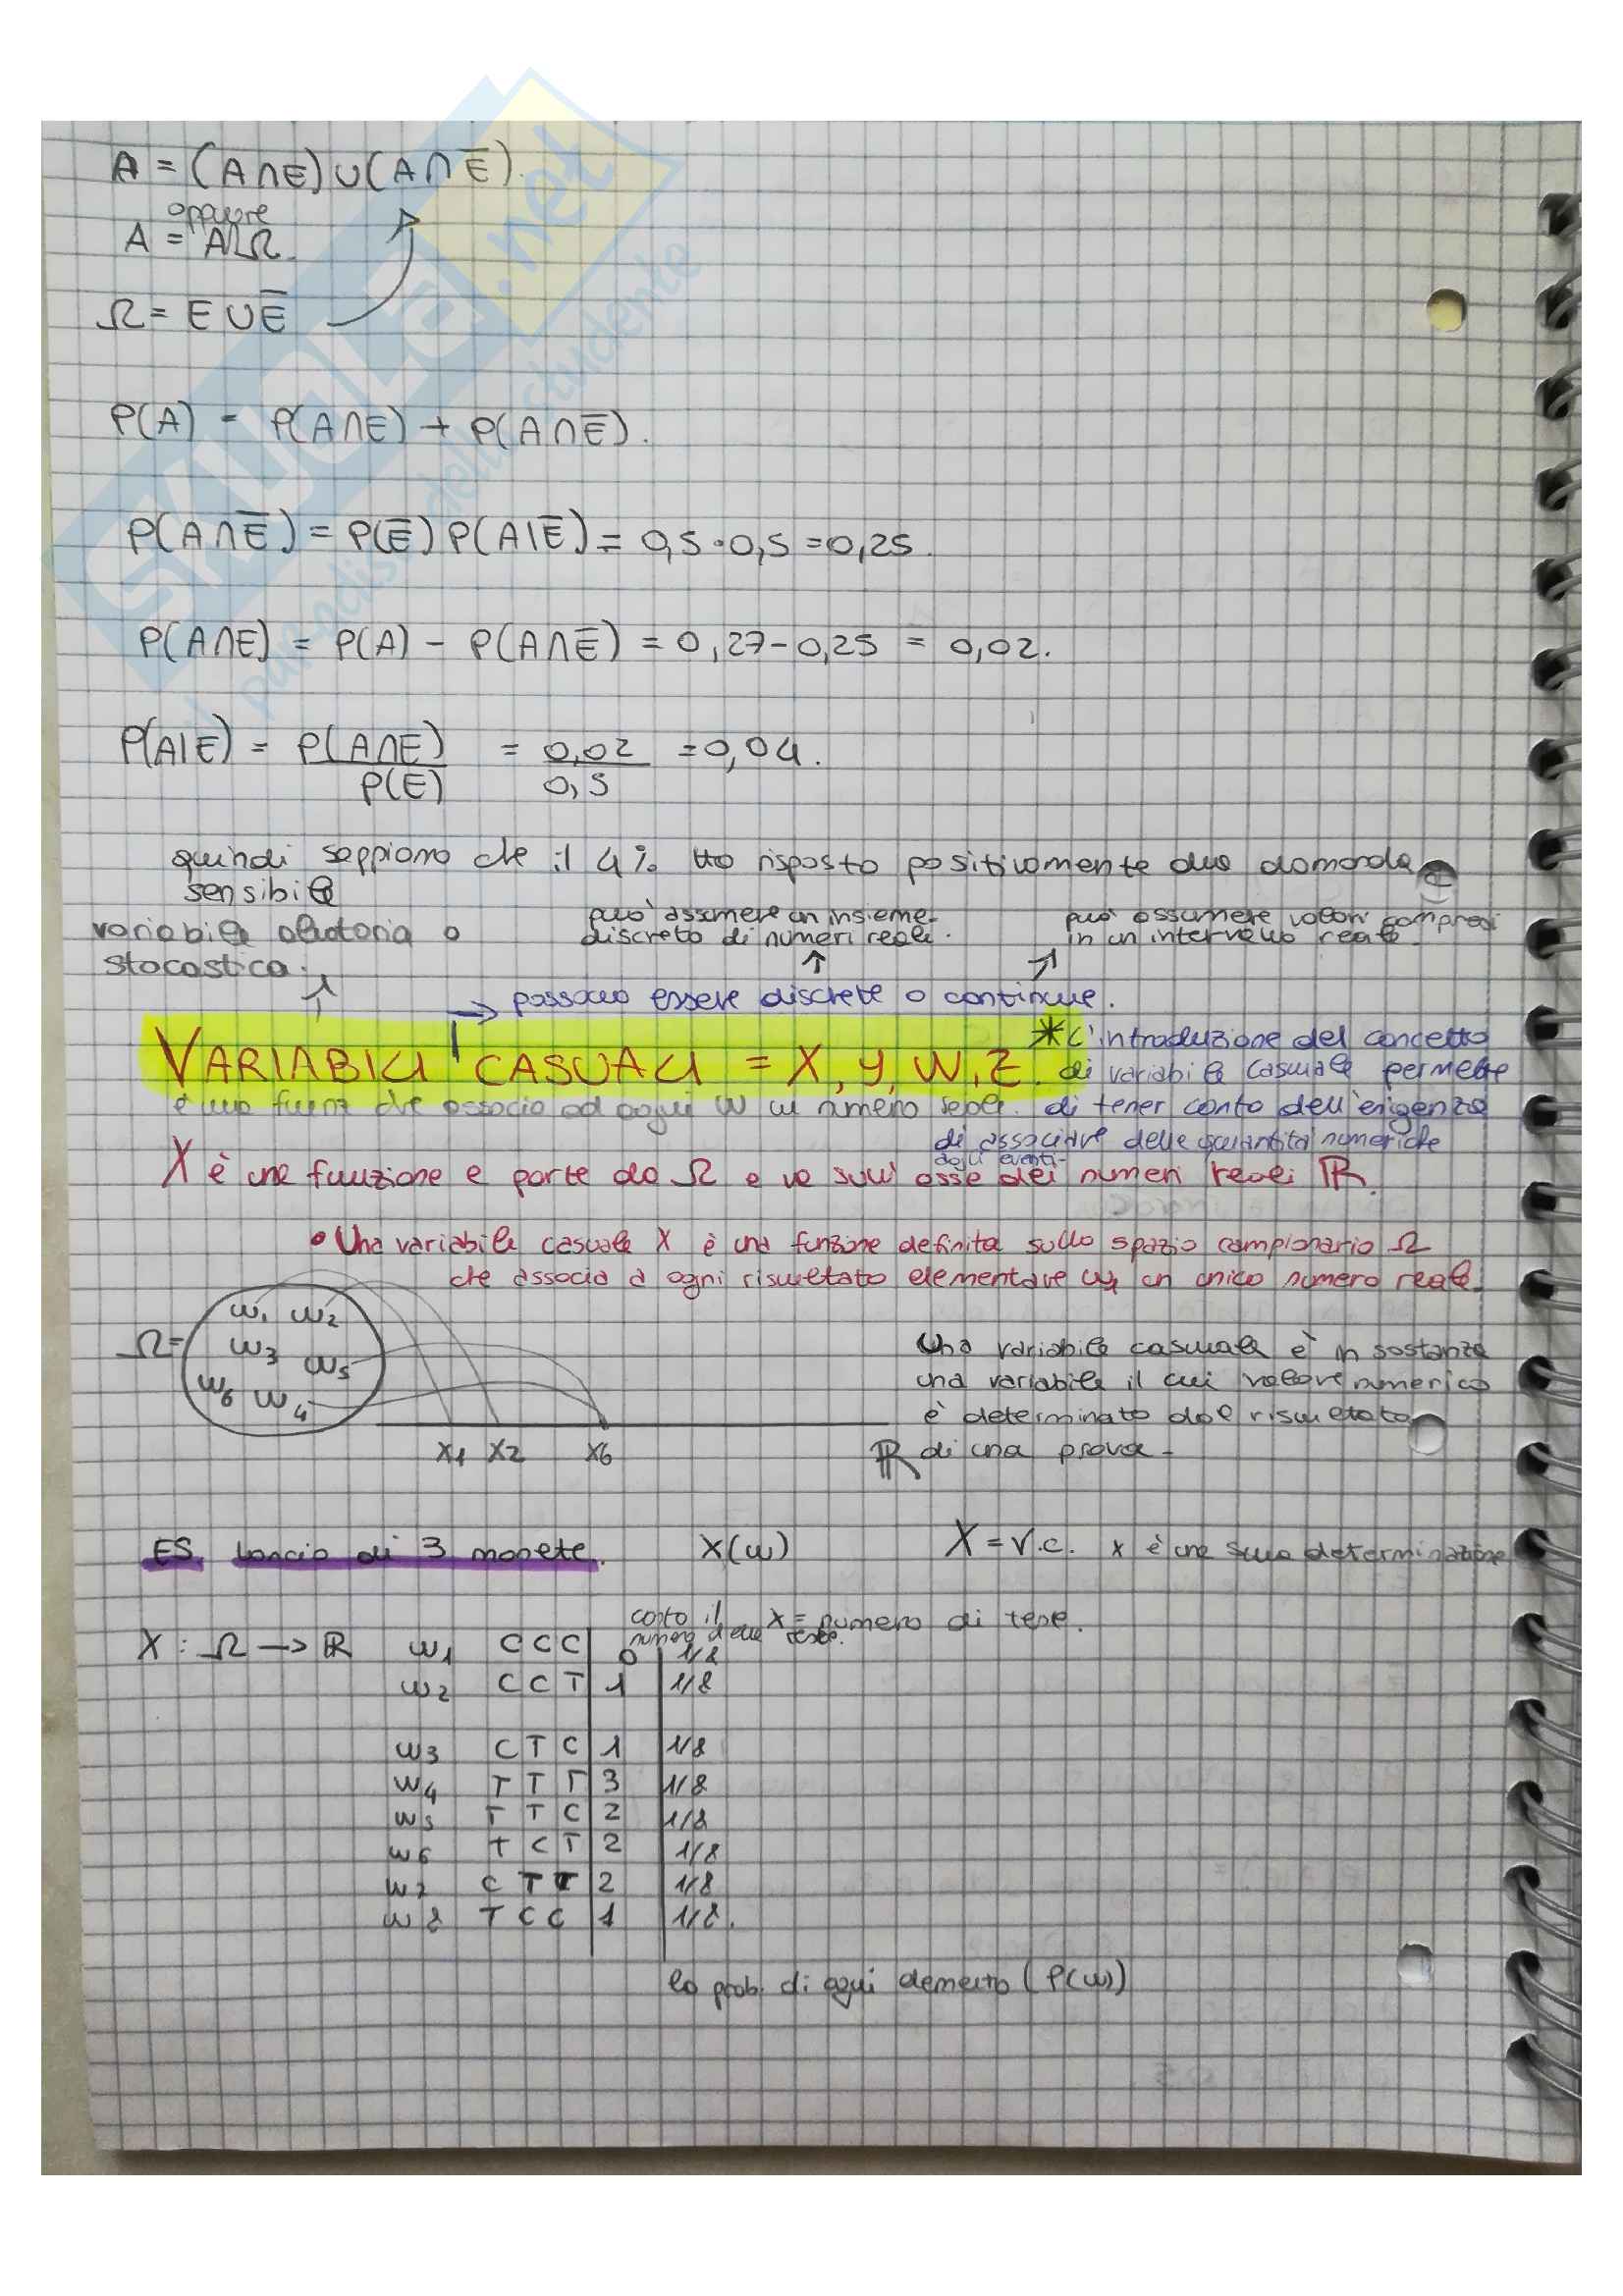 A = (A∩E) ∪ (A∩E̅).
oppure
A = A∩Ω.
Ω = E ∪ E̅
P(A) = P(A∩E) + P(A∩E̅).
P(A∩E̅) = P(E̅) P(A|E̅) = 0,5 · 0,5 = 0,25.
P(A∩E) = P(A) - P(A∩E̅) = 0,27 - 0,25 = 0,02.
P(A|E) = P(A∩E) / P(E) = 0,02 / 0,5 = 0,04.
quindi sappiamo che il 4% ha risposto positivamente alla domanda
sensibile
variabile aleatoria o
stocastica.
può assumere un insieme
discreto di numeri reali.
può assumere valori compresi
in un intervallo reale
→ possono essere discrete o continue.
VARIABILI CASUALI = X, Y, W, Z.
* L'introduzione del concetto
di variabile casuale permette
di tener conto dell'esigenza
di associare delle quantità numeriche
agli eventi-
è una funz che associa ad ogni ω un numero reale.
X è una funzione e parte da Ω e va sull'asse dei numeri reali ℝ.
• Una variabile casuale X è una funzione definita sullo spazio campionario Ω
che associa a ogni risultato elementare ω₁ un unico numero reale.
Ω =
ω₁ ω₂
ω₃ ω₅
ω₆ ω₄
x₁ x₂ x₆ ℝ
Una variabile casuale è in sostanza
una variabile il cui valore numerico
è determinato dal risultato
di una prova-
ES. Lancio di 3 monete. X(ω) X = v.c. x è una sua determinazione
conto il
numero delle teste.
X = numero di teste.
X : Ω → ℝ
ω₁ C C C 0 1/8
ω₂ C C T 1 1/8
ω₃ C T C 1 1/8
ω₄ T T T 3 1/8
ω₅ T T C 2 1/8
ω₆ T C T 2 1/8
ω₇ C T T 2 1/8
ω₈ T C C 1 1/8.
la prob. di ogni elemento (P(ω))
SKUOLA.net
il paradiso dello studente